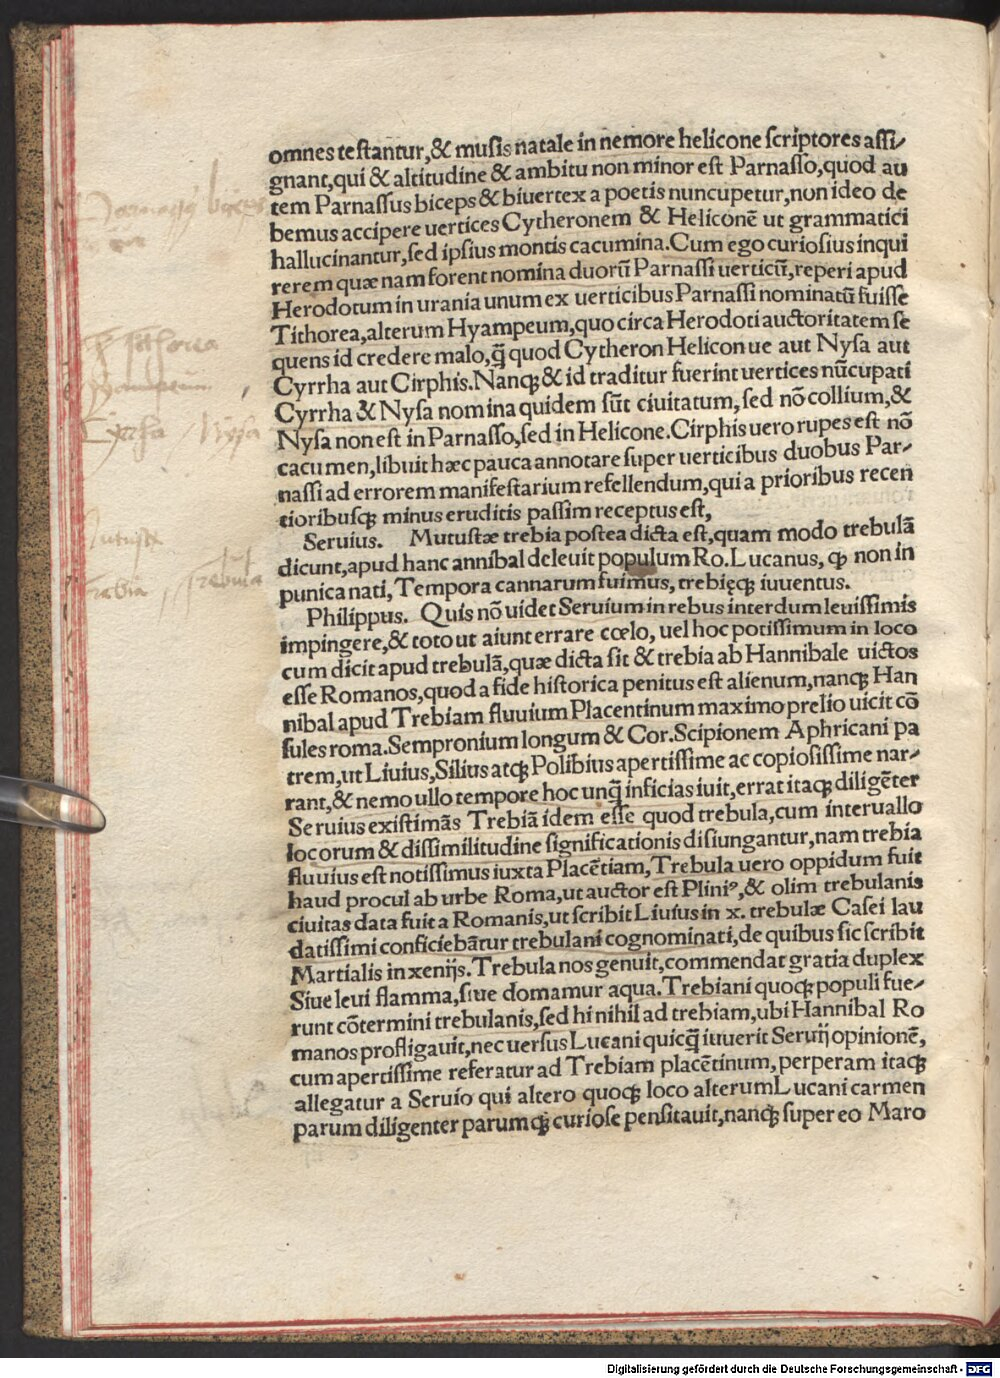 omnes testantur,& musis natale in nemore helicone scriptores assi-
gnant,qui & altitudine & ambitu non minor est Parnasso,quod au
tem Parnassus biceps & biuertex a poetis nuncupetur,non ideo de
bemus accipere uertices Cytheronem & Heliconē ut grammatici
hallucinantur,sed ipsius montis cacumina.Cum ego curiosius inqui
rerem quæ nam forent nomina duorū Parnassi uerticū,reperi apud
Herodotum in urania unum ex uerticibus Parnassi nominatū fuisse
Tithorea,alterum Hyampeum,quo circa Herodoti auctoritatem se
quens id credere malo,q̄ quod Cytheron Helicon ue aut Nysa aut
Cyrrha aut Cirphis.Nanqꝫ & id traditur fuerint uertices nūcupati
Cyrrha & Nysa nomina quidem sūt ciuitatum,sed nō collium,&
Nysa non est in Parnasso,sed in Helicone.Cirphis uero rupes est nō
cacumen,libuit hæc pauca annotare super uerticibus duobus Par-
nassi ad errorem manifestarium refellendum,qui a prioribus recen
tioribusqꝫ minus eruditis passim receptus est,
Seruius. Mutustæ trebia postea dicta est,quam modo trebulā
dicunt,apud hanc annibal deleuit populum Ro.Lucanus, ꝙ non in
punica nati, Tempora cannarum fuimus, trebięqꝫ iuuentus.
Philippus. Quis nō uidet Seruium in rebus interdum leuissimis
impingere,& toto ut aiunt errare cœlo, uel hoc potissimum in loco
cum dicit apud trebulā,quæ dicta sit & trebia ab Hannibale uictos
esse Romanos,quod a fide historica penitus est alienum,nanqꝫ Han
nibal apud Trebiam fluuium Placentinum maximo prelio uicit cō
sules roma.Sempronium longum & Cor.Scipionem Aphricani pa
trem,ut Liuius,Silius atqꝫ Polibius apertissime ac copiosissime nar-
rant,& nemo ullo tempore hoc unq̄ inficias iuit,errat itaqꝫ diligēter
Seruius existimās Trebiā idem esse quod trebula,cum interuallo
locorum & dissimilitudine significationis disiungantur,nam trebia
fluuius est notissimus iuxta Placētiam,Trebula uero oppidum fuit
haud procul ab urbe Roma,ut auctor est Pliniꝰ,& olim trebulanis
ciuitas data fuit a Romanis,ut scribit Liuius in x. trebulæ Casei lau
datissimi conficiebātur trebulani cognominati,de quibus sic scribit
Martialis in xenijs.Trebula nos genuit,commendat gratia duplex
Siue leui flamma,siue domamur aqua.Trebiani quoqꝫ populi fue-
runt cōtermini trebulanis,sed hi nihil ad trebiam,ubi Hannibal Ro
manos profligauit,nec uersus Lucani quicq̄ iuuerit Seruij opinionē,
cum apertissime referatur ad Trebiam placētinum,perperam itaqꝫ
allegatur a Seruio qui altero quoqꝫ loco alterum Lucani carmen
parum diligenter parumqꝫ curiose pensitauit,nanqꝫ super eo Maro
Tithorea
Hyampeum
Cyrrha / Nysa
Mutustæ
Trebia // Trebula
Digitalisierung gefördert durch die Deutsche Forschungsgemeinschaft - DFG